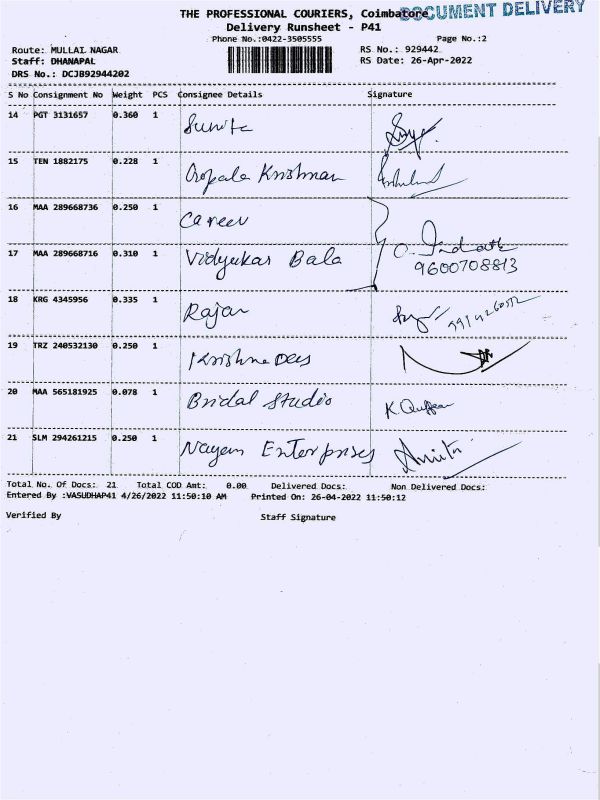 THE PROFESSIONAL COURIERS, Coimbatore. DOCUMENT DELIVERY
Delivery Runsheet - P41
Phone No.:0422-3505555 Page No.:2
Route: MULLAI NAGAR RS No.: 929442
Staff: DHANAPAL RS Date: 26-Apr-2022
DRS No.: DCJB92944202
S No Consignment No Weight PCS Consignee Details Signature
14 PGT 3131657 0.360 1 Sunita
15 TEN 1882175 0.228 1 Gopala Krishnan
16 MAA 289668736 0.250 1 Career
17 MAA 289668716 0.310 1 Vidyukar Bala 9600708813
18 KRG 4345956 0.335 1 Rajan
19 TRZ 240532130 0.250 1 Krishna Das
20 MAA 565181925 0.078 1 Bridal Studio
21 SLM 294261215 0.250 1 Nayan Enterprises
Total No. Of Docs: 21 Total COD Amt: 0.00 Delivered Docs: Non Delivered Docs:
Entered By :VASUDHAP41 4/26/2022 11:50:10 AM Printed On: 26-04-2022 11:50:12
Verified By Staff Signature